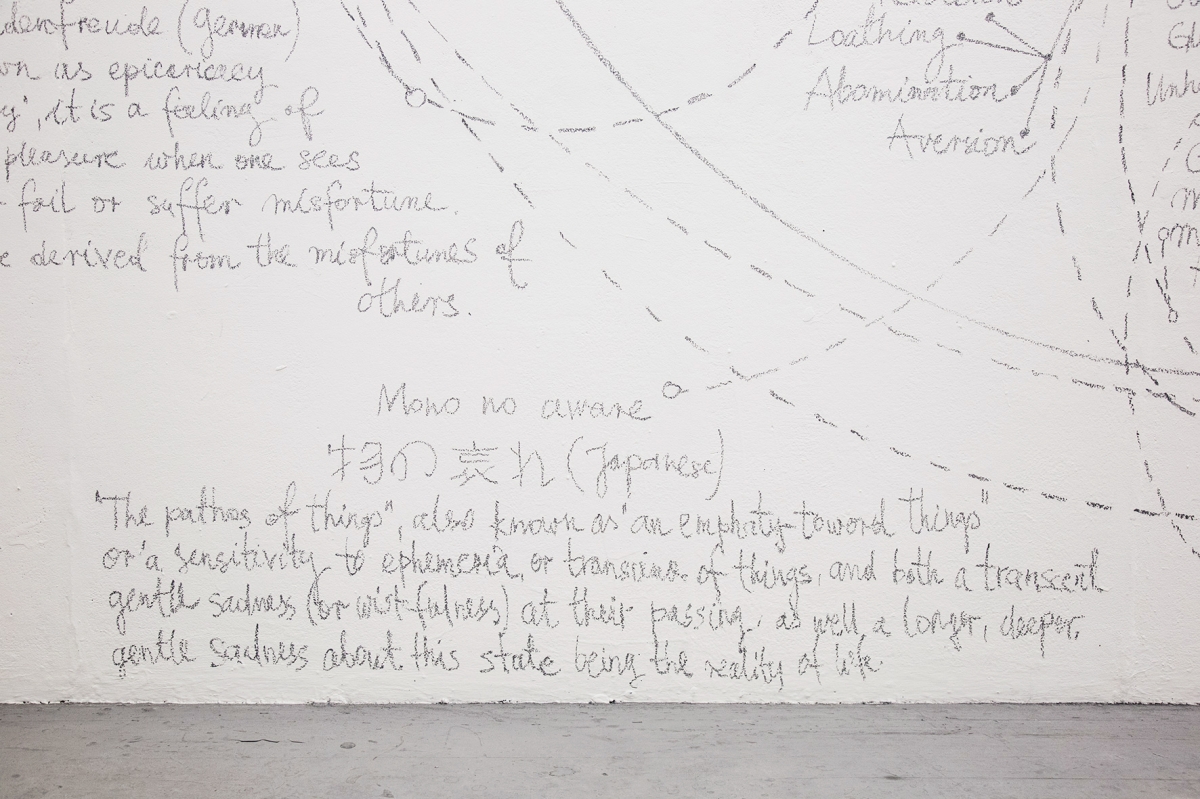 denfreude (German)
wn as epicaricacy
y', it is a feeling of
pleasure when one sees
fail or suffer misfortune.
e derived from the misfortunes of
others.
Loathing
Abomination
Aversion
Unh
Mono no aware
物の哀れ (Japanese)
"The pathos of things", also known as "an emphaty toward things"
or 'a sensitivity to ephemeria, or transience of things, and both a transcent
gentle sadness (or wistfulness) at their passing. as well a longer, deeper,
gentle sadness about this state being the reality of life.